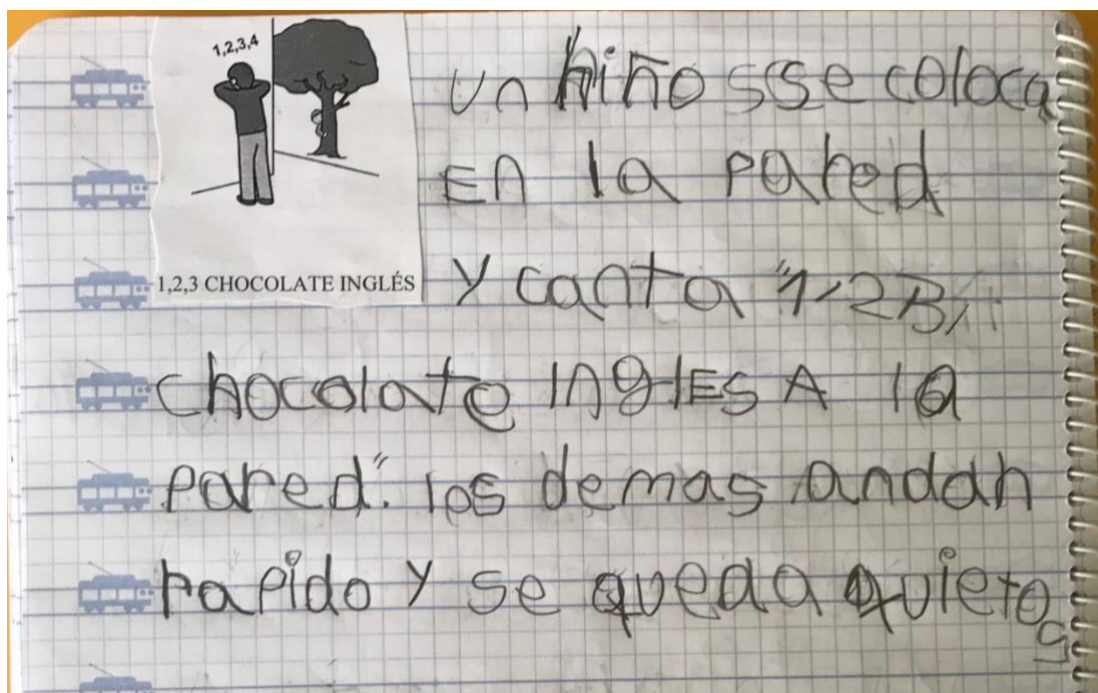 1,2,3,4
1,2,3 CHOCOLATE INGLÉS
un niño sse coloca
En la pared
y canta "1,2 3,
chocolate inglEs A la
pared". los demas andan
rapido y se queda quietos